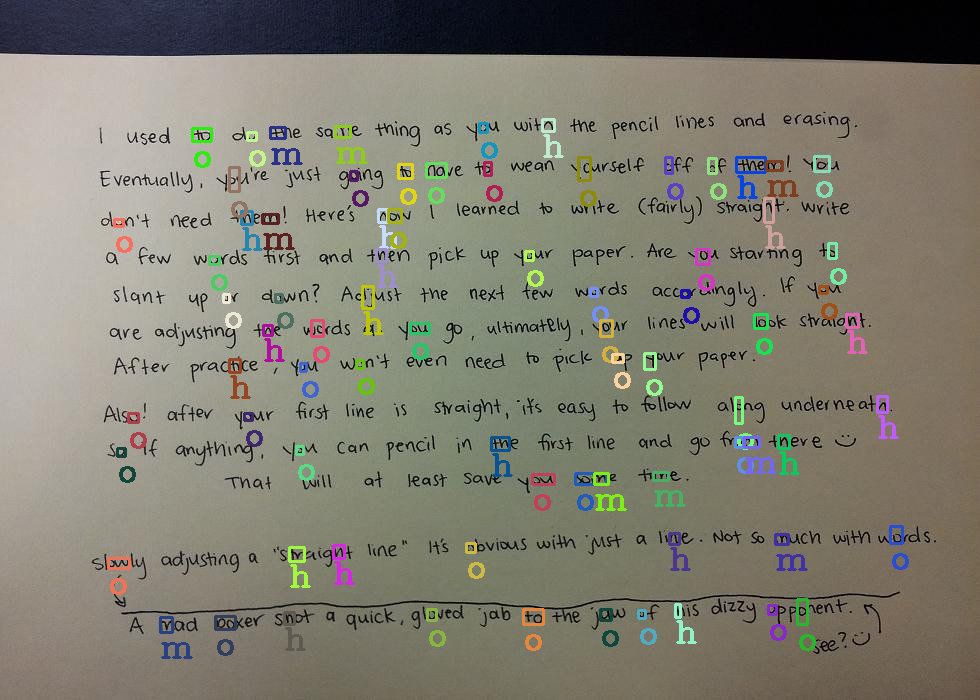 I used to do the same thing as you with the pencil lines and erasing.
Eventually, you're just going to have to wean yourself off of them! You
don't need them! Here's how I learned to write (fairly) straight. write
a few words first and then pick up your paper. Are you starting to
slant up or down? Adjust the next few words accordingly. If you
are adjusting the words as you go, ultimately, your lines will look straight.
After practice, you won't even need to pick up your paper.
Also! after your first line is straight, it's easy to follow along underneath.
So if anything, you can pencil in the first line and go from there
That will at least save you some time.
slowly adjusting a "straight line" It's obvious with just a line. Not so much with words.
A mad boxer shot a quick, gloved jab to the jaw of his dizzy opponent.
see?